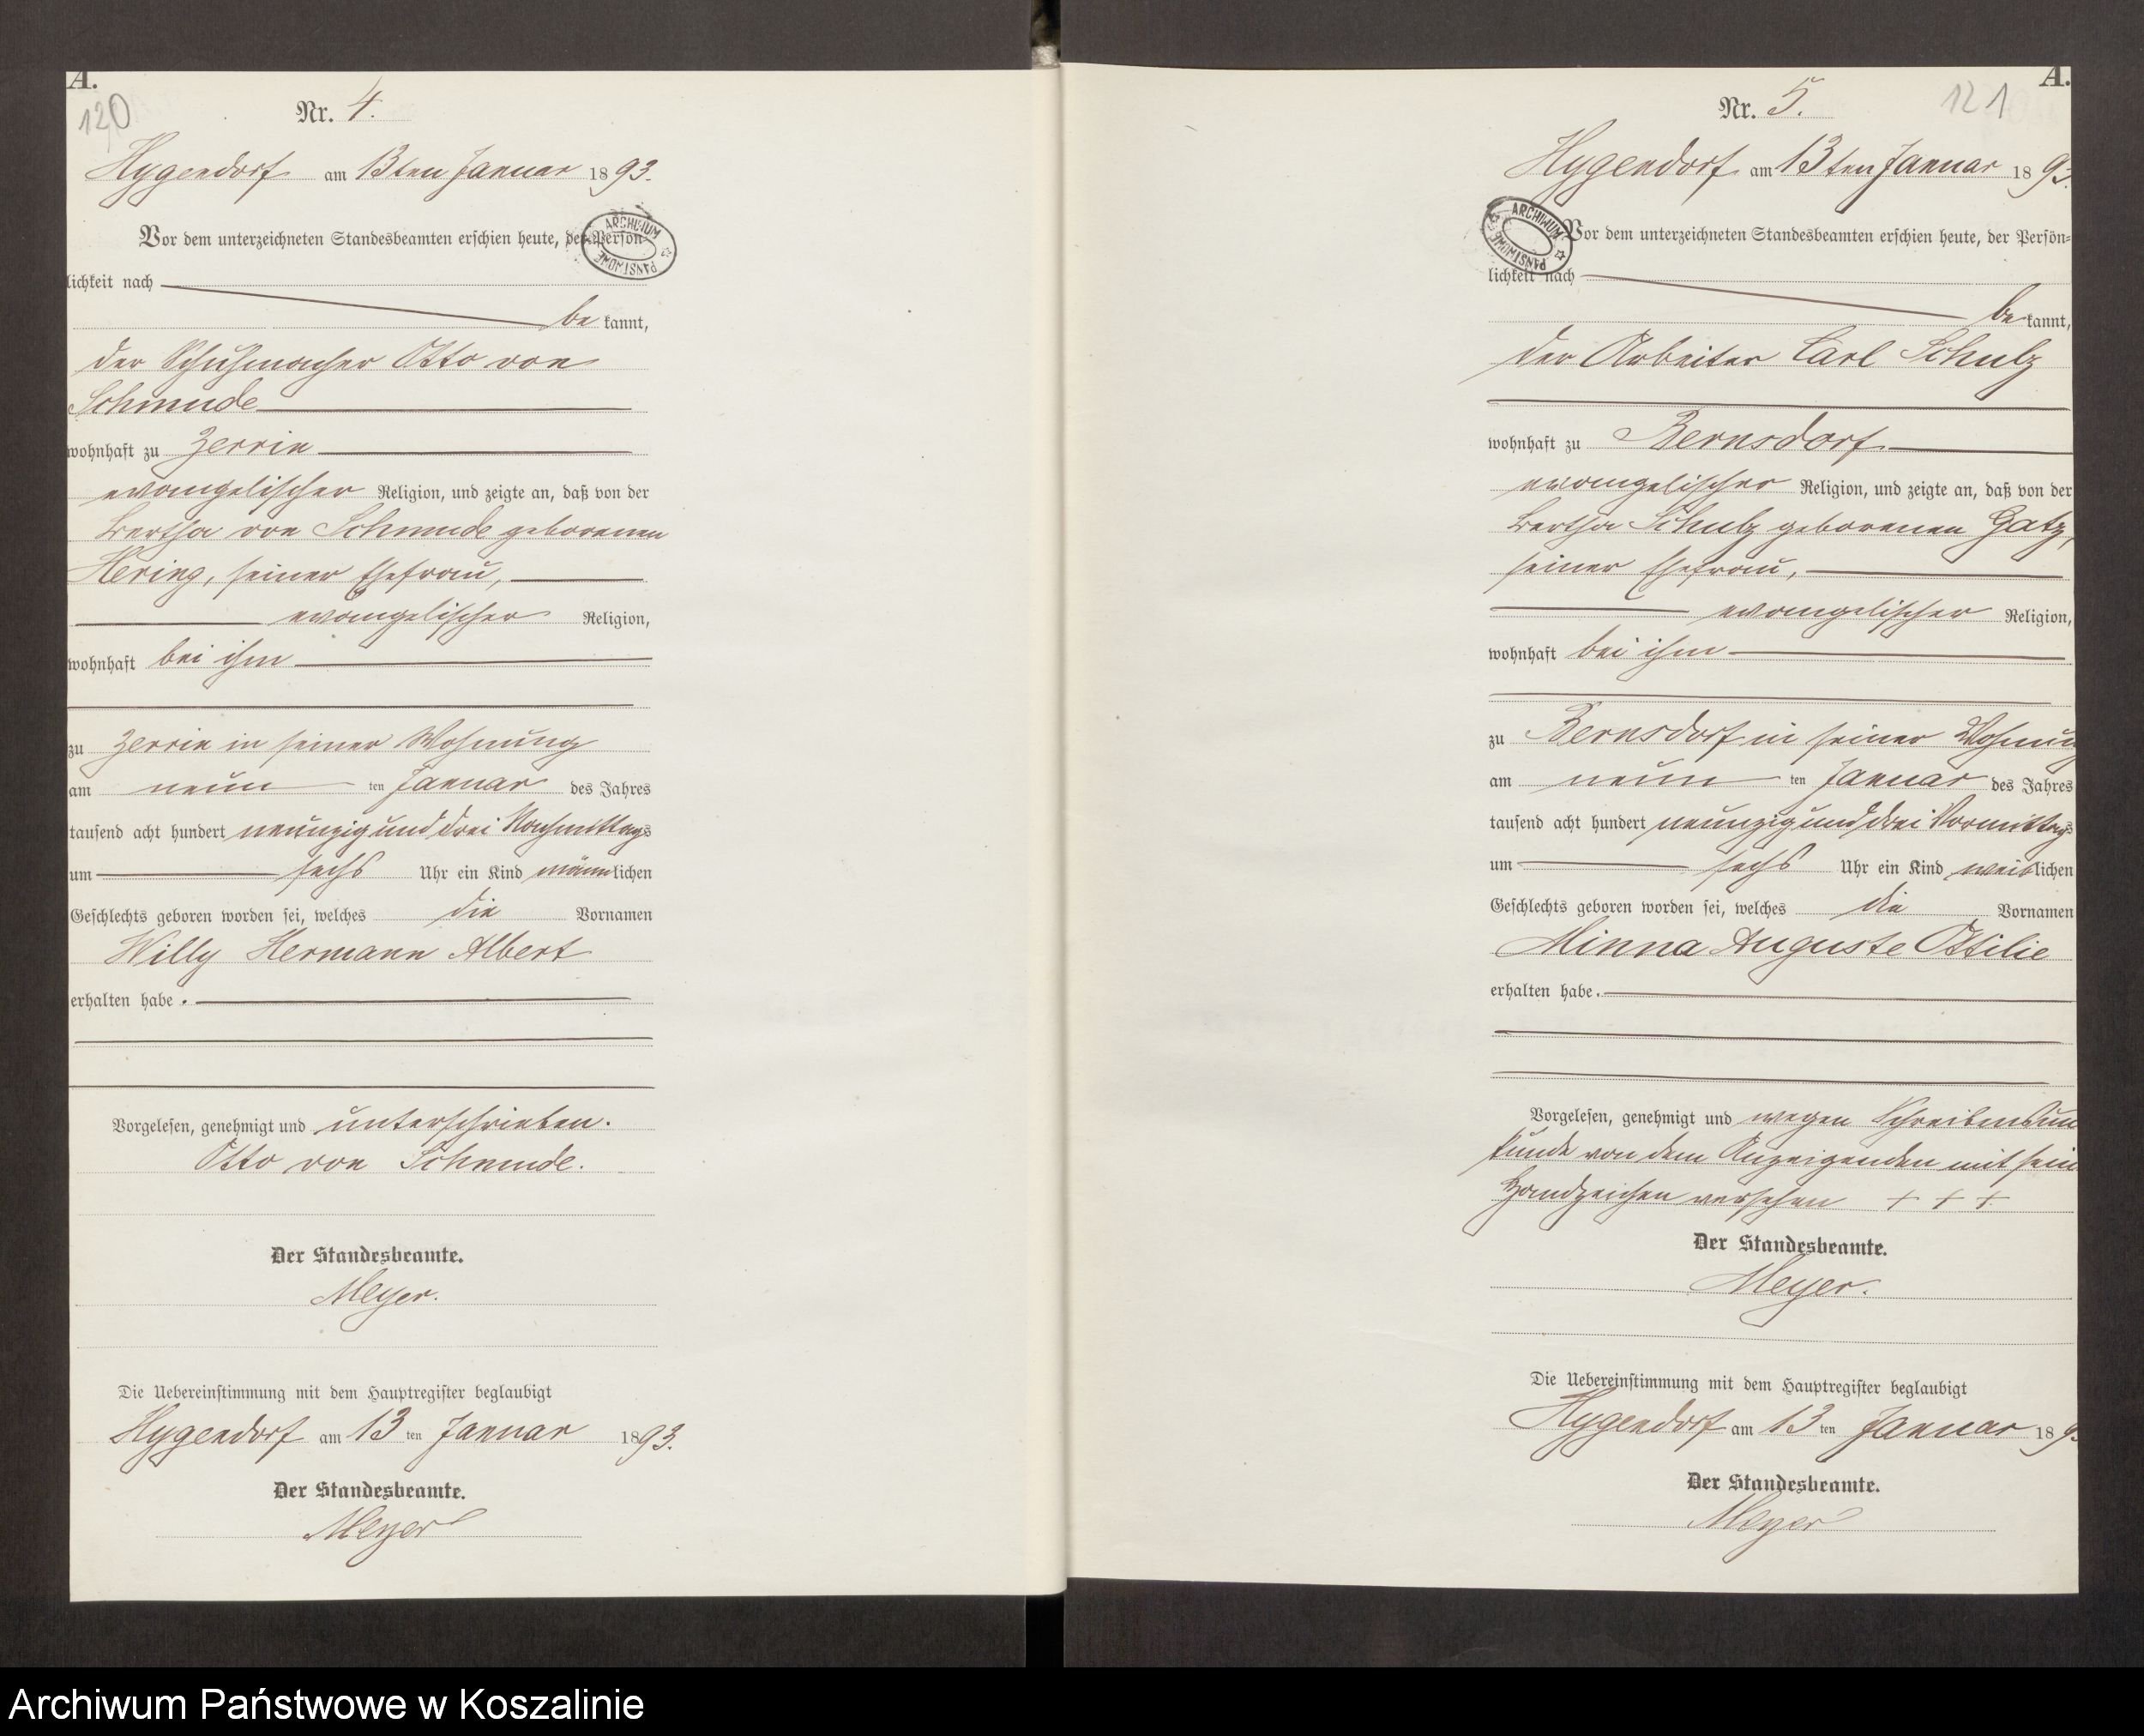 A.
120
Nr. 4.
Hygendorf am 13ten Januar 1893.
Vor dem unterzeichneten Standesbeamten erschien heute, der Persön-
ARCHIWUM PAŃSTWOWE
lichkeit nach
be kannt,
der Schuhmacher Otto von
Schmude
wohnhaft zu Zerrin
evangelischer Religion, und zeigte an, daß von der
Bertha von Schmude geborenen
Hering, seiner Ehefrau,
evangelischer Religion,
wohnhaft bei ihm
zu Zerrin in seiner Wohnung
am neun ten Januar des Jahres
tausend acht hundert neunzig und drei Nachmittags
um sechs Uhr ein Kind männlichen
Geschlechts geboren worden sei, welches die Vornamen
Willy Hermann Albert
erhalten habe.
Vorgelesen, genehmigt und unterschrieben.
Otto von Schmude.
Der Standesbeamte.
Meyer.
Die Uebereinstimmung mit dem Hauptregister beglaubigt
Hygendorf am 13 ten Januar 1893.
Der Standesbeamte.
Meyer
A.
121
Nr. 5.
Hygendorf am 13ten Januar 1893.
Vor dem unterzeichneten Standesbeamten erschien heute, der Persön-
ARCHIWUM PAŃSTWOWE
lichkeit nach
be kannt,
der Arbeiter Carl Schulz
wohnhaft zu Bernsdorf
evangelischer Religion, und zeigte an, daß von der
Bertha Schulz geborenen Gatz,
seiner Ehefrau,
evangelischer Religion,
wohnhaft bei ihm
zu Bernsdorf in seiner Wohnung
am neun ten Januar des Jahres
tausend acht hundert neunzig und drei Vormittags
um sechs Uhr ein Kind weiblichen
Geschlechts geboren worden sei, welches die Vornamen
Minna Auguste Ottilie
erhalten habe.
Vorgelesen, genehmigt und wegen Schreibensun
kunde von dem Anzeigenden mit sein
Handzeichen versehen + + +
Der Standesbeamte.
Meyer.
Die Uebereinstimmung mit dem Hauptregister beglaubigt
Hygendorf am 13 ten Januar 189
Der Standesbeamte.
Meyer
Archiwum Państwowe w Koszalinie